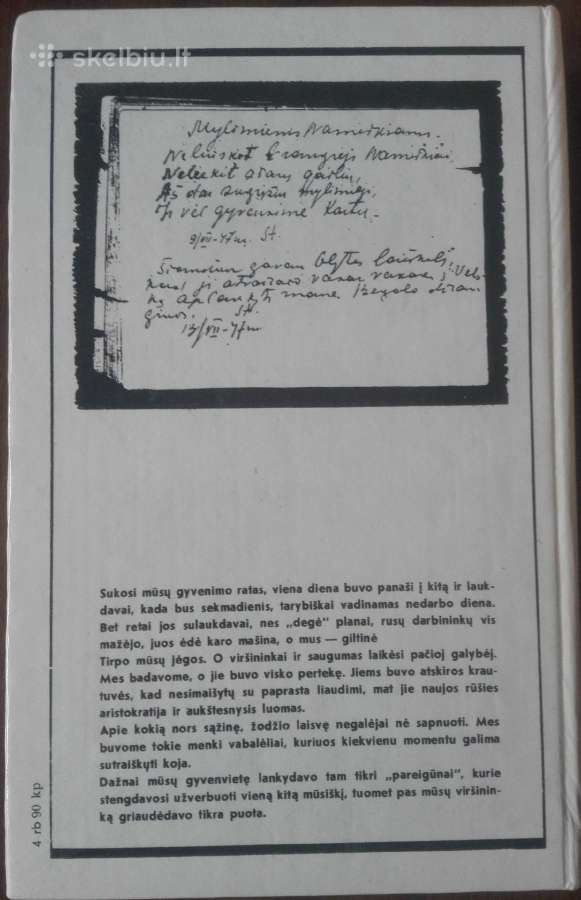 skelbiu.lt
Mylimiems Namiškiams.
Neliūskit brangieji Namiškiai
Neliekit ašarų gailių,
Aš dar sugrįšiu mylimieji,
Ir vėl gyvensime kartu.
9/VII-47m. St.
Šiandien gavau laiškelį,
ji vakar vakare,
mane. Be galo džiau
giuosi. St.
13/VII-47m.
Sukosi mūsų gyvenimo ratas, viena diena buvo panaši į kitą ir lauk-
davai, kada bus sekmadienis, tarybiškai vadinamas nedarbo diena.
Bet retai jos sulaukdavai, nes „degė“ planai, rusų darbininkų vis
mažėjo, juos ėdė karo mašina, o mus — giltinė
Tirpo mūsų jėgos. O viršininkai ir saugumas laikėsi pačioj galybėj.
Mes badavome, o jie buvo visko pertekę. Jiems buvo atskiros krau-
tuvės, kad nesimaišytų su paprasta liaudimi, mat jie naujos rūšies
aristokratija ir aukštesnysis luomas.
Apie kokią nors sąžinę, žodžio laisvę negalėjai nė sapnuoti. Mes
buvome tokie menki vabalėliai, kuriuos kiekvienu momentu galima
sutraiškyti koja.
Dažnai mūsų gyvenvietę lankydavo tam tikri „pareigūnai“, kurie
stengdavosi užverbuoti vieną kitą mūsiškį, tuomet pas mūsų viršinin-
ką griaudėdavo tikra puota.
4 rb 90 kp